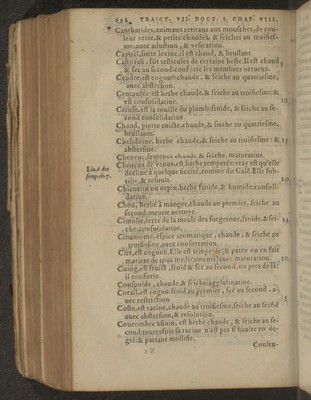 632 TRAICT. VII. DOCT. I. CHAP. VIII.
Cantharides, animaux retirans aux mousches, de cou-
leur verte, & petits: chaudes, & seiches au troisies-
me, avec adustion, & vescication.
Capitel, sorte lexive, il est chaud, & bruslant.
Castoreo, sõt testicules de certaine beste. Il est chaud
& sec au second: conforte les membres nerveux.
Cendre, est cognue: chaude, & seiche au quatriesme,
avec abstersion.
Centaurée est herbe chaude, & seiche au troisiesme: &
est consolidative. 10
Ceruse, est la rouille du plomb: froide, & seiche au se-
cond consolidative.
Chaud, pierre cuicte, chaude, & seiche au quatriesme,
bruslante.
Chelidoine, herbe chaude, & seiche au troisiesme: & 15
abstersive.
Chenevi, semence chaude & seiche, maturative.
Cheveux de Venus, est herbe temperée: ray est qu'elle
decline à quelque siccité, comme dit Galē. Elle sub-
tilie, & resoult. 20
Chicotrin ou orpin, herbe froide, & humide: consoli-
dative.
Chou, herbe à manger, chaude au premier, seiche au
second, meurit nettoye.
Cimolie, terre de la meule des forgerons, froide, & sei- 25
che, consolidative.
Cinamome, espice aromatique, chaude, & seiche au
troisiesme, avec confortation.
Cire, est cognuë. Elle est temperée; & parce on en fait
matiere de tous medicaments: avec maturation. 30
Coing, est fruict, froid & sec au second, ou pres de là:
il conforte.
Consoulde, chaude, & seiche: agglutinative.
Corail, est cognu: froid au premier, sec au second, a-
vec restriction. 35
Coste, est racine, chaude au troisiesme, seiche au second
avec abstersion, & resolution.
Coucombre asinin, est herbe chaude, & seiche au se-
cond: toutesfois sa racine n'est pas si haute en de-
gré: & partant mollifie.
Couleu-